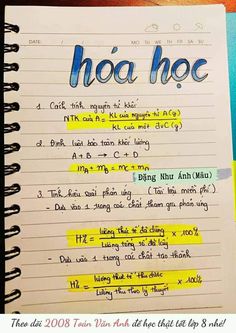 DATE: / MO TU WE TH FR SA SU
hóa học
1. Cách tính nguyên tử khối
NTK của A = KL của nguyên tử A (g)
KL của một đvC (g)
2. Định luật bảo toàn khối lượng
A + B → C + D
mA + mB = mC + mD
Đặng Như Ánh (Mâu)
3. Tính hiệu suất phản ứng (Tài liệu miễn phí)
- Dựa vào 1 trong các chất tham gia phản ứng
H% = lượng thực tế đã dùng x 100%
Lượng tổng số đã lấy
- Dựa vào 1 trong các chất tạo thành
H% = lượng thực tế thu được x 100%
Lượng thu theo lý thuyết
Theo dõi 2008 Toán Văn Anh để học thật tốt lớp 8 nhé!